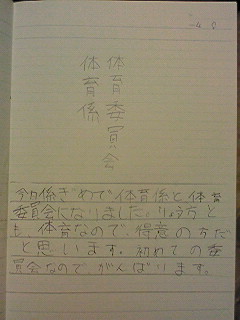 体育委員会
体育係
今日係ぎめで体育係と体育
委員会になりました。りょう方と
も、体育なので、得意の方だ
と思います。初めての委
員会なのでがんばります。